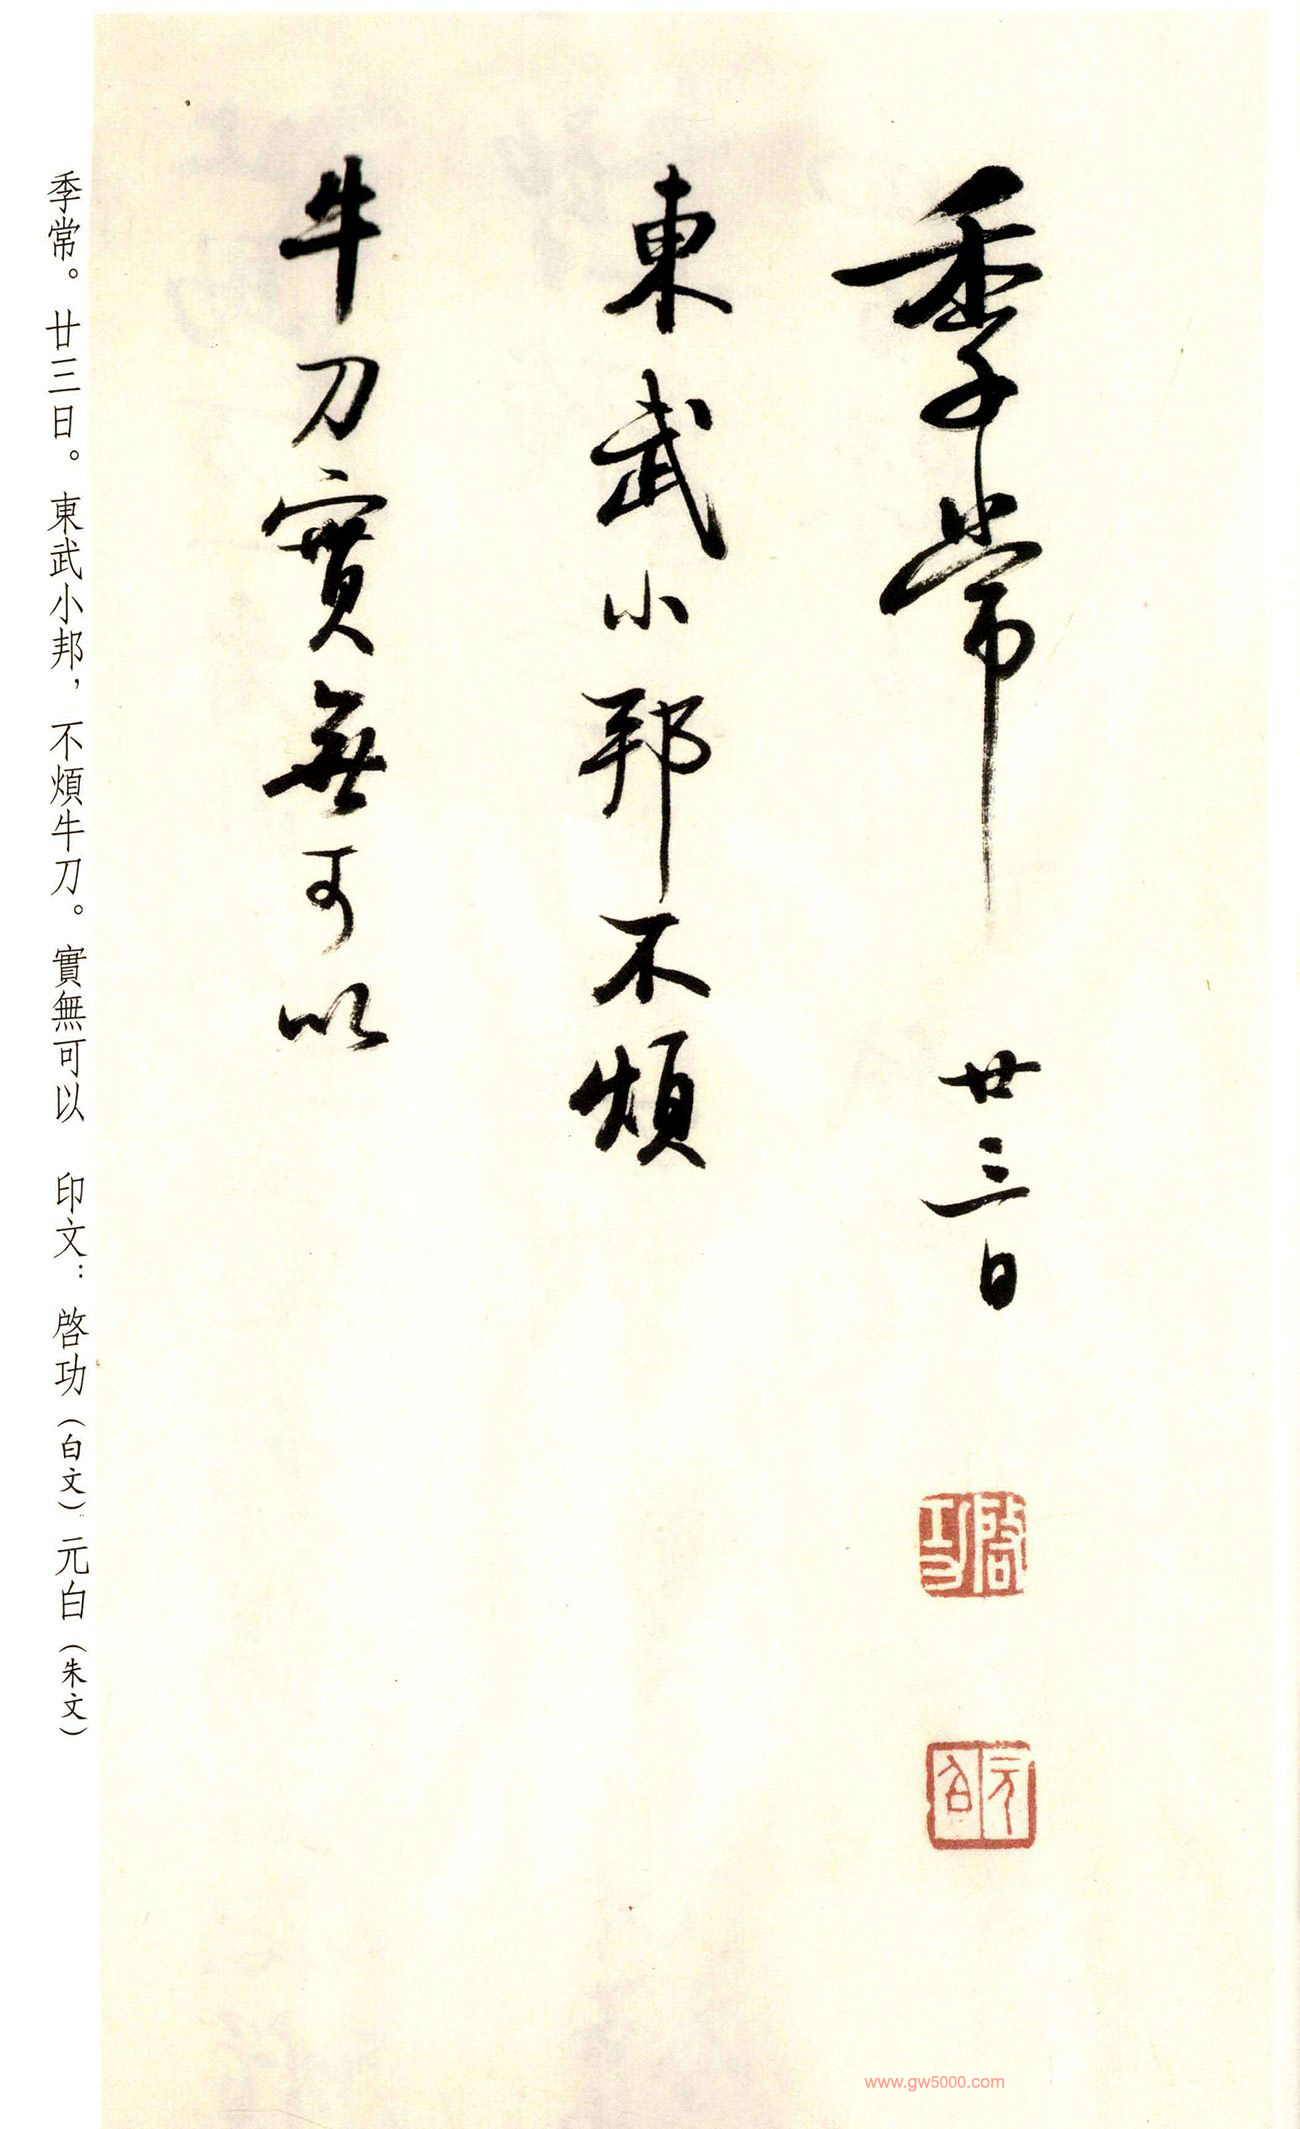 季常 廿三日
啓功
元白
東武小邦不煩
牛刀實無可以
季常。廿三日。東武小邦，不煩牛刀。實無可以 印文：啓功（白文）元白（朱文）
www.gw5000.com